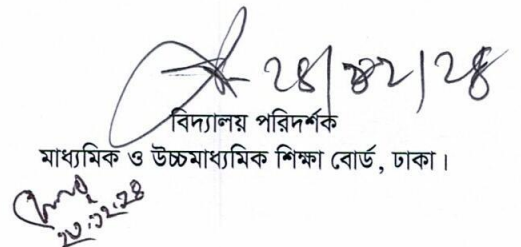 ২৪/১২/২৪
বিদ্যালয় পরিদর্শক
মাধ্যমিক ও উচ্চমাধ্যমিক শিক্ষা বোর্ড, ঢাকা।